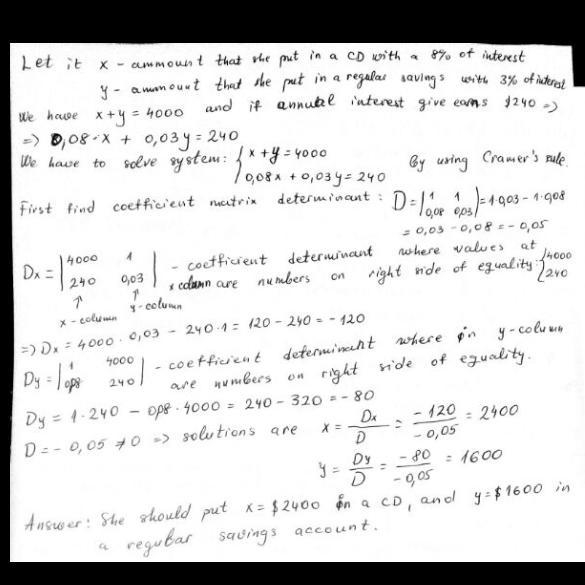 Let it x - ammount that she put in a CD with a 8% of interest
y - ammount that she put in a regular savings with 3% of interest
We have x+y = 4000 and if annual interest give earns $240 =>
=> 0,08·x + 0,03y = 240
We have to solve system: { x+y = 4000 By using Cramer's rule.
0,08x + 0,03y = 240
First find coefficient matrix determinant: D = |1 1| = 1·0,03 - 1·0,08
|0,08 0,03|
= 0,03 - 0,08 = - 0,05
Dx = |4000 1| - coefficient determinant where values at
|240 0,03| x column are numbers on right side of equality: {4000
{240
↑ ↑
x - column y - column
=> Dx = 4000 · 0,03 - 240·1 = 120 - 240 = - 120
Dy = |1 4000| - coefficient determinant where in y - column
|0,08 240| are numbers on right side of equality.
Dy = 1·240 - 0,08·4000 = 240 - 320 = - 80
D = - 0,05 ≠ 0 => solutions are x = Dx / D = - 120 / - 0,05 = 2400
y = Dy / D = - 80 / - 0,05 = 1600
Answer: She should put x = $2400 in a CD, and y = $1600 in
a regular savings account.